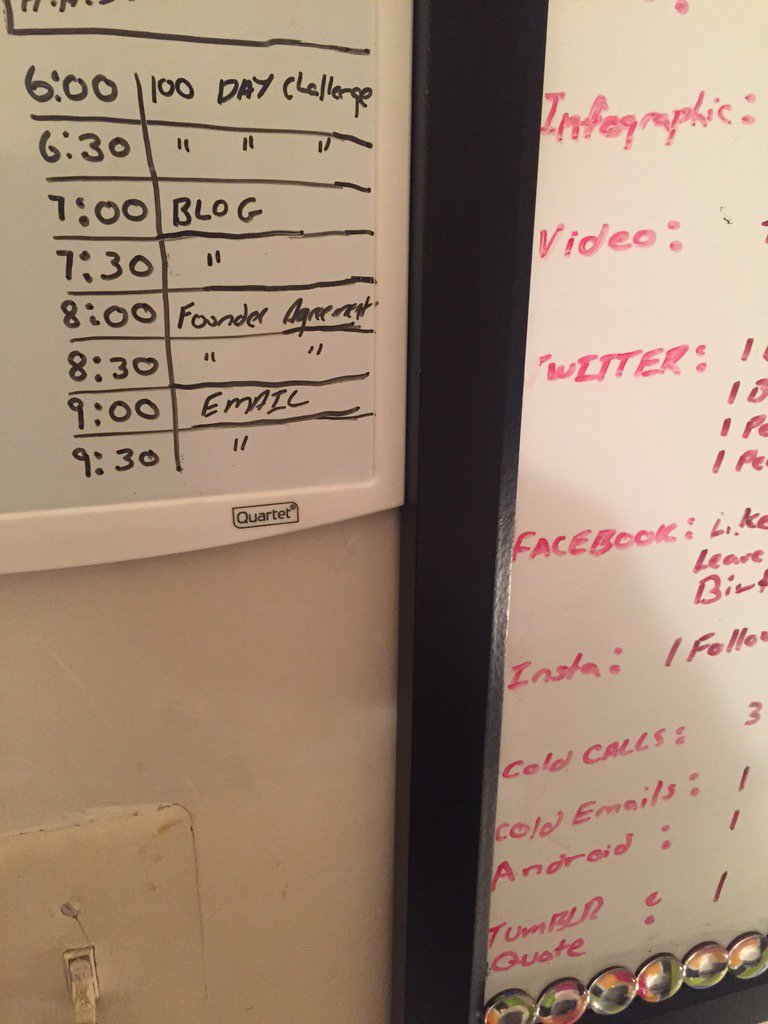 6:00 100 DAY Challenge
6:30 " " "
7:00 BLOG
7:30 "
8:00 Founder Agreement
8:30 " "
9:00 EMAIL
9:30 "
Quartet®
Infographic:
Video:
TWITTER: 1
1
1
1
FACEBOOK: Like
Leave
Insta: 1
Cold CALLS: 3
Cold Emails: 1
Android: 1
TUMBLR : 1
Quote